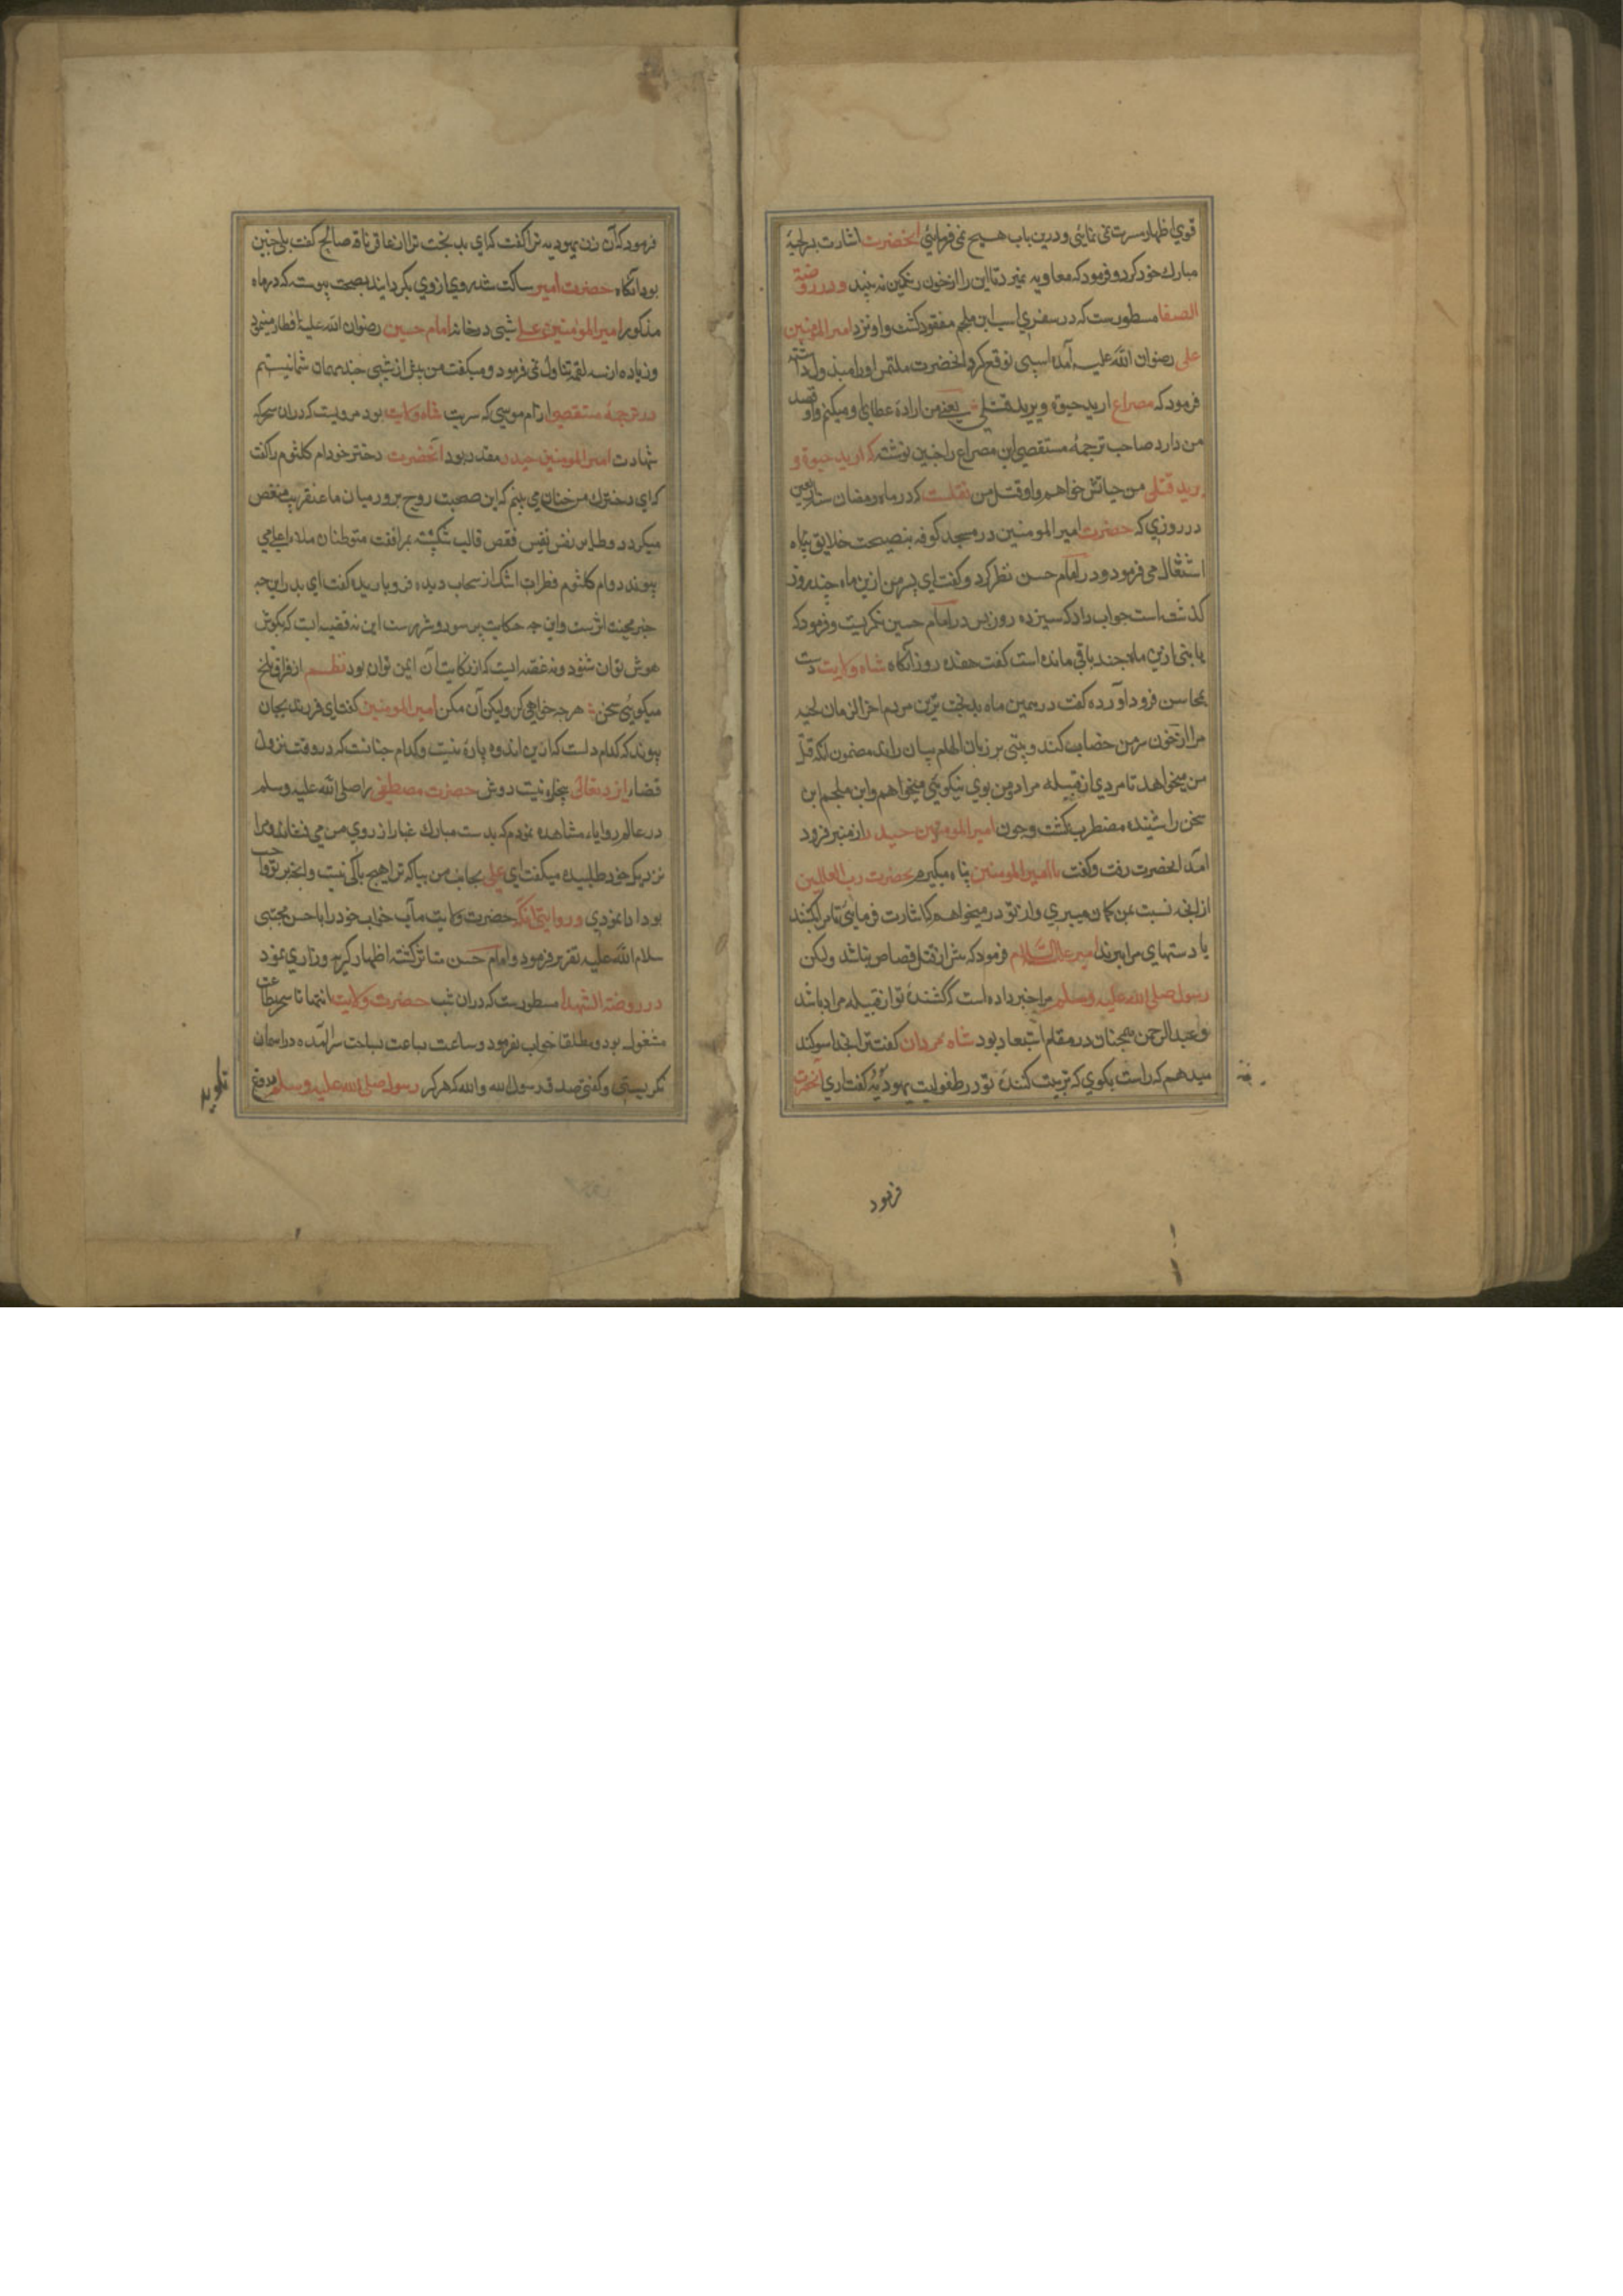 قوي اظهار مسرت نمی نمایئی و درین باب هسیح نمی فرمایئی انحضرت اشارت بر لحیۀ
مبارك خود کرد و فرمود که معاویه نمیرد تا این را از خون رنکین نه بیند و در روضة
الصفا مسطورست که در سفری اسپ ابن ملجم مفقود کشت و او نزد امیر المؤمنین
علی رضوان الله علیه آمده اسپی توقع کرد انحضرت ملتمس او را مبذول داشته
فرمود که مصراع ارید حیوة و یرید قتلی یعنی من ارادۀ عطای او میکنم و او قصد
من دارد صاحب ترجمۀ مستقصی این مصراع را چنین نوشته که ارید حیوة و
یرید قتلی من حیاتش خواهم و او قتل من نقلست که در ماه رمضان سنۀ اربعین
در روزي که حضرت امیر المومنین در مسجد کوفه بنصیحت خلایق پناه
اشتغال می فرمود در امام حسن نظر کرد و کفت ای پسر من ازین ماه چند روز
کذشته است جواب داد که سیزده روز پس در امام حسین نکریست و فرمود که
یا بنی ازین ماه چند باقی مانده است کفت هفده روز آنکاه شاه ولایت دست
بمحاسن فرود آورده کفت در همین ماه بدبخت ترین مردم اخر الزمان لحیه
مرا از خون سر من خضاب کند و بیتی بر زبان الهام بیان راند مضمون انکه قتل
من میخواهد نامردي از قبیله مراد و من بوي نیکویئی میخواهم و ابن ملجم این
سخن را شنیده مضطرب کشت و چون امیر المومنین حیدر از منبر فرود
امد انحضرت رفت و کفت یا امیر المومنین پناه میکیرم بحضرت رب العالمین
از انچه نسبت بمن کمان میبري و از تو در میخواهم که اشارت فرمایئی تا مرا بکشند
یا دستهای مرا ببرند امیر علیه السلام فرمود که پیش از قتل قصاص نباشد ولیکن
رسول صلی الله علیه وسلم مرا خبر داده است که کشندۀ تو از قبیله مراد باشد
و عبد الرحمن همچنان در مقام استبعاد بود شاه مردان کفت ترا بخدا سوکند
میدهم که راست بکوي که تربیت کنندۀ تو در طفولیت یهودیۀ کفتاري انحضرت
فرمود
فرمود که آن زن یهودیه ترا کفت که اي بدبخت تر از عاقر ناقۀ صالح کفت بلی چنین
بود انکاه حضرت امیر ساکت شده روی از وي بکردانید بصحت پیوسته که در ماه
مذکور امیر المؤمنین علی شبی در خانه امام حسین رضوان الله علیه افطار مینمود
و زیاده از سه لقمه تناول نمی فرمود و میکفت من بیش از شبی چند مهمان شما نیستم
در ترجمۀ مستقصی از ام موسی که سریت شاه ولایت بود مرویست که در ان سحر که
شهادت امیر المومنین حیدر مقدر بود آنحضرت دختر خود ام کلثوم را کفت
که اي دخترك من چنان می بینم که این صحبت روح پرور میان ما عنقریب منغص
میکردد و طایر نفس نفیس قفص قالب شکسته بمرافقت متوطنان ملاء اعلی می
پیوندد و ام کلثوم قطرات اشک از سحاب دیده فرو باریده کفت اي پدر این چه
خبر محنت اثرست و این چه حکایت پر سوز و شررست این نه قضیه ایست که بکوش
هوش توان شنود و نه غصه ایست که از نکایت آن ایمن توان بود نظم از فراق تلخ
میکویئی سخن هر چه خواهی کن ولیکن آن مکن امیر المومنین کفت اي فرزند بجان
پیوند که کدام دلست که ازین اندوه پاره نیست و کدام جنانست که در وقت نزول
قضاء ایزد تعالی بیچاره نیست دوش حضرت مصطفی را صلی الله علیه وسلم
در عالم رویاء مشاهده نمودم که بدست مبارك غبار از روي من می فشاند و مرا
نزدیک خود طلبیده میکفت اي علی بجانب من بیا که ترا هیچ باکی نیست و انچه بر تو واجب
بود ادا نمودي و روایتی انکه حضرت ولایت مآب خواب خود را با حسن مجتبی
سلام الله علیه تقریر فرمود و امام حسن متاثر کشته اظهار کریه و زاري نمود
در روضة الشهدا مسطورست که در ان شب حضرت ولایت انتها تا سحر بطاعت
مشغول بود و مطلقا خواب نفرمود و ساعت بساعت بساحت سرا آمده در اسمان
نکریستی و کفتی صدق رسول الله والله که هرکز رسول صلی الله علیه وسلم دروغ
نکوید